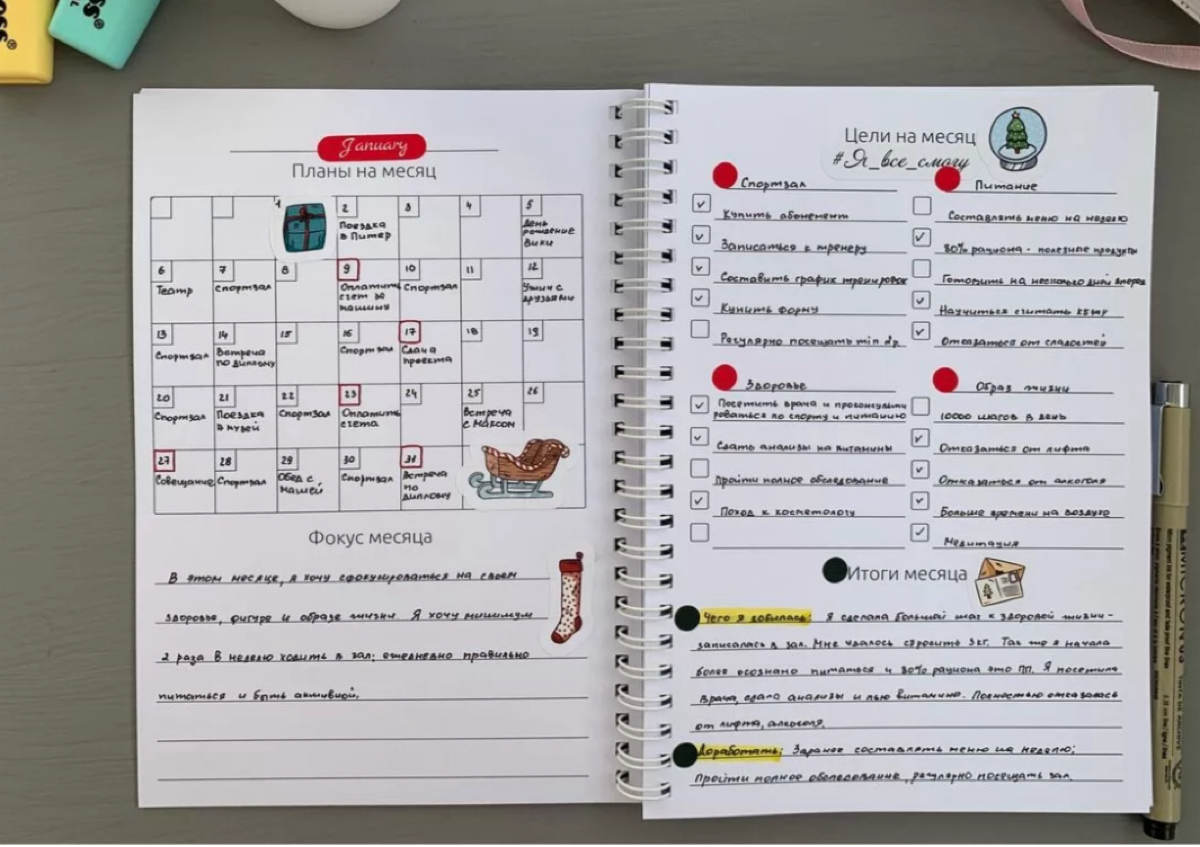 January
Планы на месяц
1
2
Поездка
в Питер
3
4
5
День
рождение
Вики
6
Театр
7
Спортзал
8
9
Оплатить
счет за
машину
10
Спортзал
11
12
Ужин с
друзьями
13
Спортзал
14
Встреча
по диплому
15
16
Спортзал
17
Сдача
проекта
18
19
20
Спортзал
21
Поездка
в музей
22
Спортзал
23
Оплатить
счета
24
25
Встреча
с Максом
26
27
Совещание
28
Спортзал
29
Обед с
Машей
30
Спортзал
31
Встреча
по
диплому
Фокус месяца
В этом месяце, я хочу сфокусироваться на своем
здоровье, фигуре и образе жизни. Я хочу минимум
2 раза в неделю ходить в зал; ежедневно правильно
питаться и быть активной.
Цели на месяц
#Я_все_смогу
Спортзал
Купить абонемент
Записаться к тренеру
Составить график тренировок
Купить форму
Регулярно посещать min 2р.
Питание
Составлять меню на неделю
80% рациона - полезные продукты
Готовить на несколько дней вперед
Научиться считать КБЖУ
Отказаться от сладостей
Здоровье
Посетить врача и проконсульти
роваться по спорту и питанию
Сдать анализы на витамины
Пройти полное обследование
Поход к косметологу
Образ жизни
10000 шагов в день
Отказаться от лифта
Отказаться от алкоголя
Больше времени на воздухе
Медитация
Итоги месяца
Чего я добилась: Я сделала большой шаг к здоровой жизни -
записалась в зал. Мне удалось сбросить 3кг. Так же я начала
более осознано питаться и 80% рациона это ПП. Я посетила
врача, сдала анализы и пью витамины. Полностью отказалась
от лифта, алкоголя.
Доработать: Заранее составлять меню на неделю;
Пройти полное обследование, регулярно посещать зал.